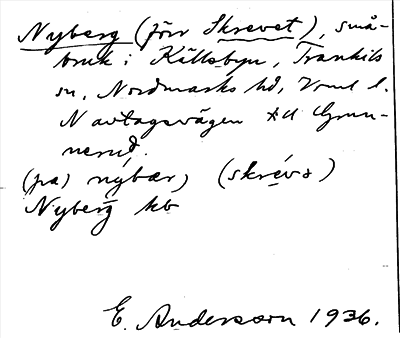 Nyberg (förr Skrevet), små-
bruk i Källsbyn, Trankils
sn, Nordmarks hd, Vrml l.
N avtagsvägen till Grun-
nerud.
(på) nýbær, (skrévə)
Nyberg kb
E. Andersson 1936.